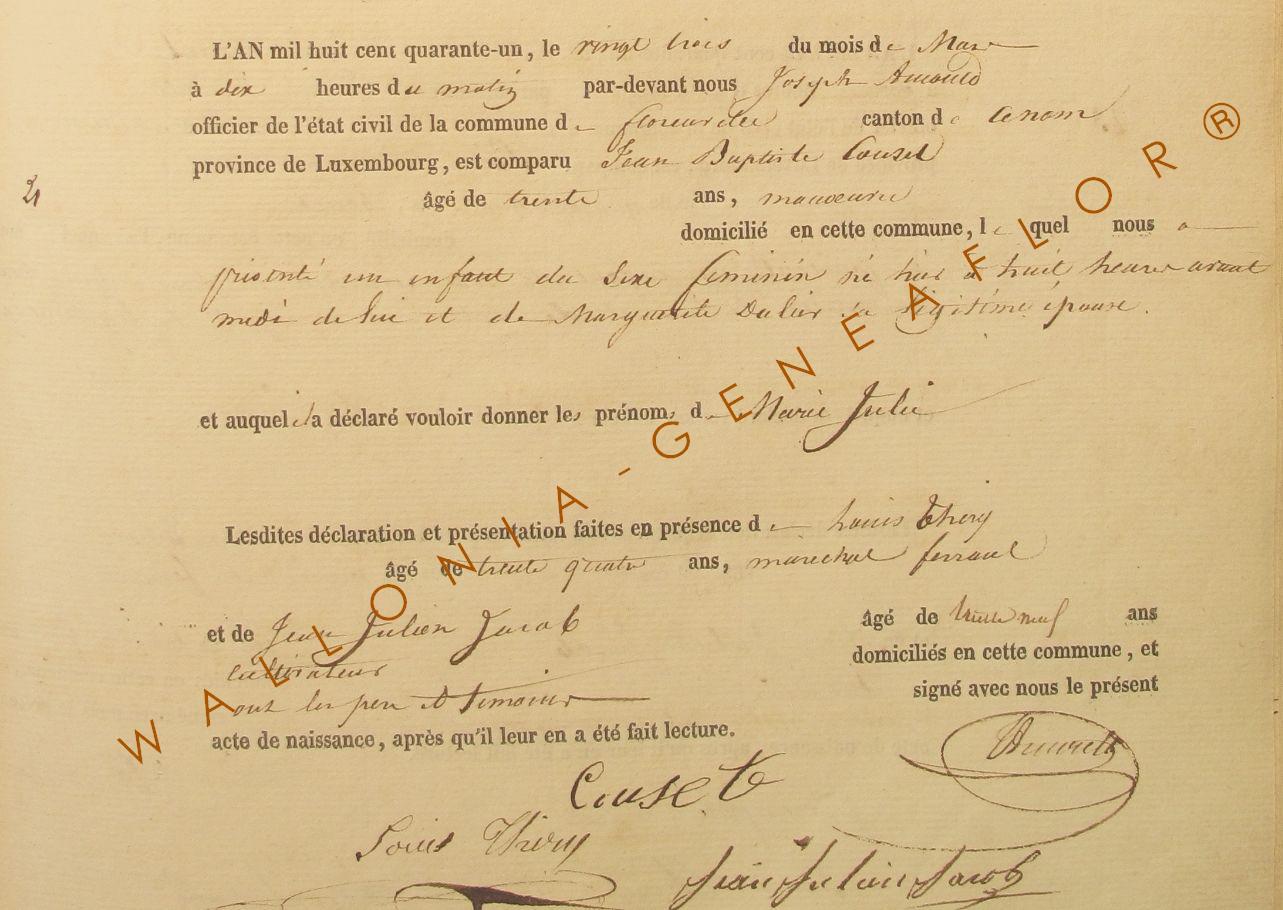 L'AN mil huit cent quarante-un, le vingt trois du mois de Mars
à dix heures du matin par-devant nous Joseph
officier de l'état civil de la commune de canton de
province de Luxembourg, est comparu Jean Baptiste Couset
21
âgé de trente ans, manoeuvre
domicilié en cette commune, lequel nous a
présenté un enfant du sexe feminin né hier à huit heures avant
midi de lui et de Marguerite sa légitime épouse.
et auquel il a déclaré vouloir donner les prénoms de Marie Julie
Lesdites déclaration et présentation faites en présence de Louis Thiry
âgé de trente quatre ans, marechal ferrant
et de Jean Julien Jacob âgé de trente neuf ans
cultivateur domiciliés en cette commune, et
ont les pere et temoins signé avec nous le présent
acte de naissance, après qu'il leur en a été fait lecture.
Couset
Louis Thiry
Jean Julien Jacob
WALLONIA-GENEAFLOR®